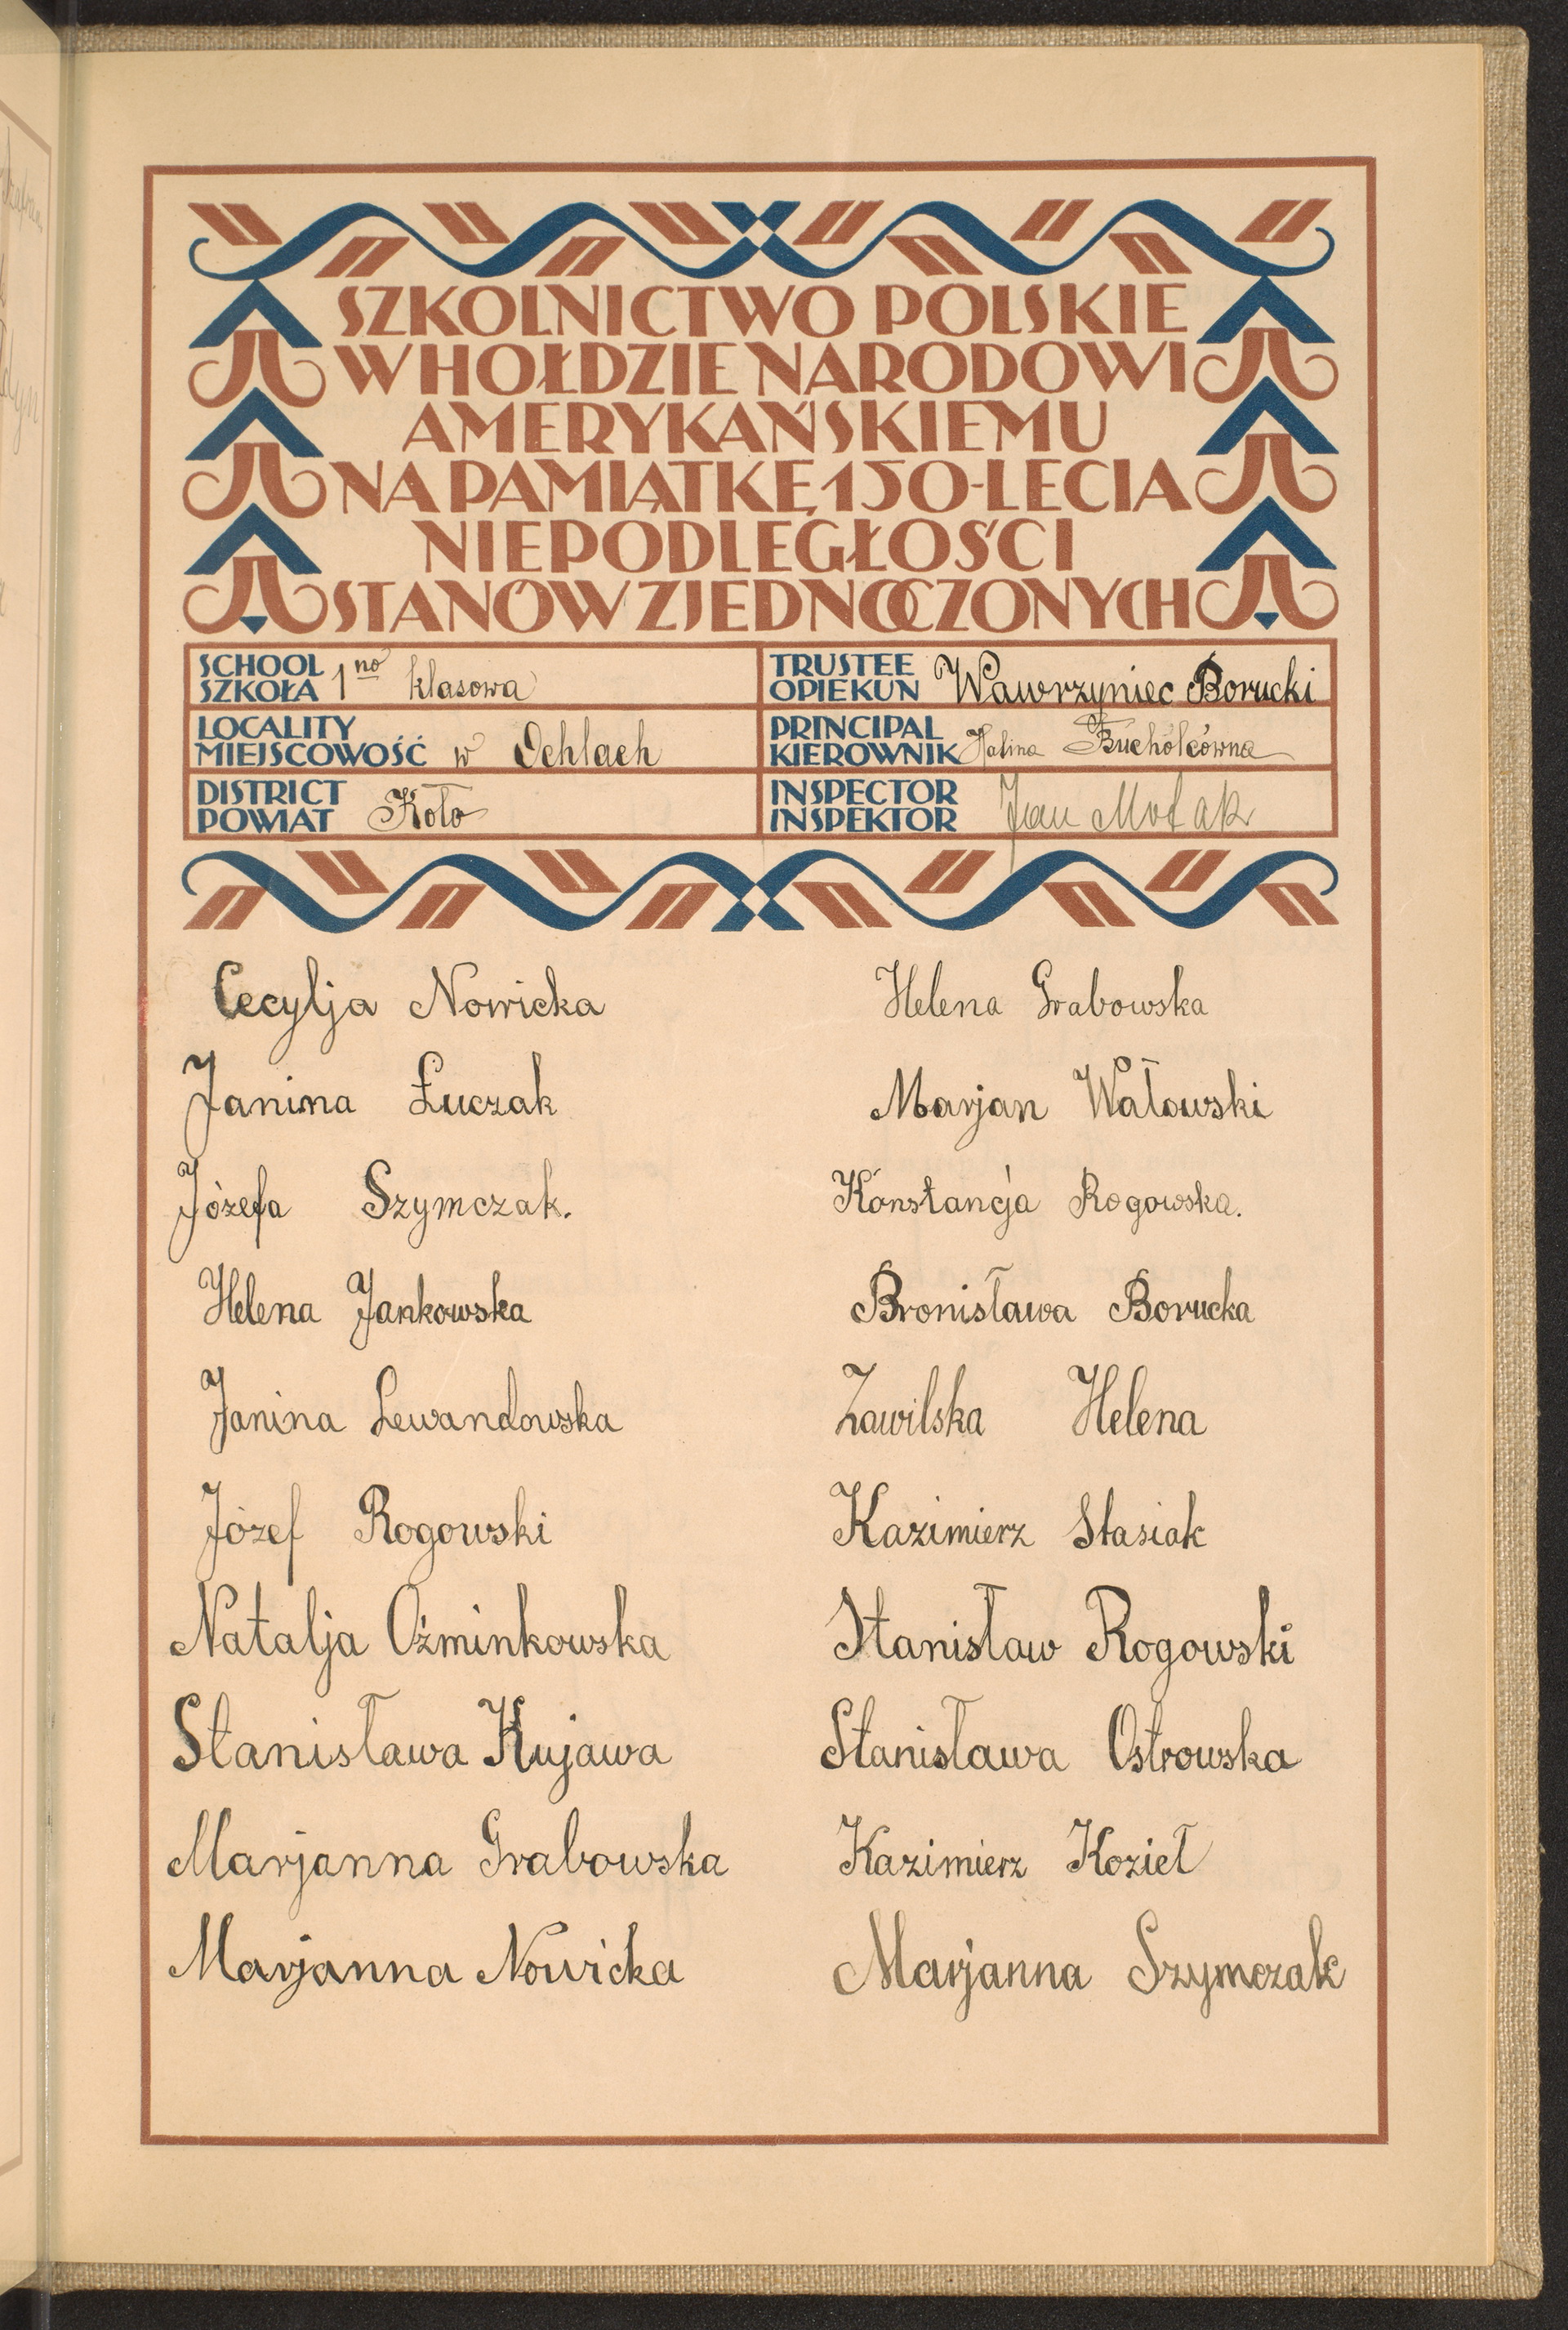 SZKOLNICTWO POLSKIE
W HOŁDZIE NARODOWI
AMERYKAŃSKIEMU
NA PAMIĄTKĘ 150-LECIA
NIEPODLEGŁOŚCI
STANÓW ZJEDNOCZONYCH
SCHOOL
SZKOŁA 1no klasowa
TRUSTEE
OPIEKUN Wawrzyniec Borucki
LOCALITY
MIEJSCOWOŚĆ w Ochlach
PRINCIPAL
KIEROWNIK Halina Bucholcówna
DISTRICT
POWIAT Koło
INSPECTOR
INSPEKTOR Jan
Cecylja Nowicka
Janina Łuczak
Józefa Szymczak.
Helena Jankowska
Janina Lewandowska
Józef Rogowski
Natalja Oźminkowska
Stanisława Kujawa
Marjanna Grabowska
Marjanna Nowicka
Helena Grabowska
Marjan Wałowski
Konstancja Rogowska.
Bronisława Borucka
Zawilska Helena
Kazimierz Stasiak
Stanisław Rogowski
Stanisława Ostrowska
Kazimierz Kozieł
Marjanna Szymczak